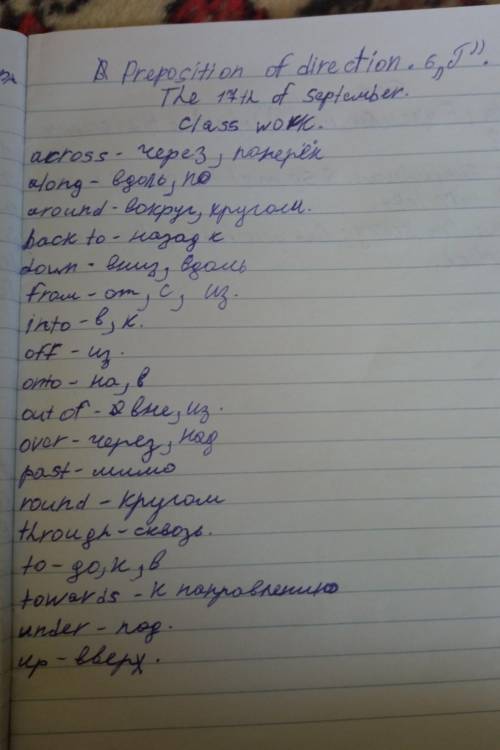 Preposition of direction. 6 „J".
The 17th of september.
Class work.
across - через, поперёк
along - вдоль, по
around - вокруг, кругом.
back to - назад к
down - вниз, вдоль
from - от, с, из.
into - в, к.
off - из.
onto - на, в
out of - вне, из.
over - через, над
past - мимо
round - кругом
through - сквозь.
to - до, к, в
towards - к направлению
under - под.
up - вверх.